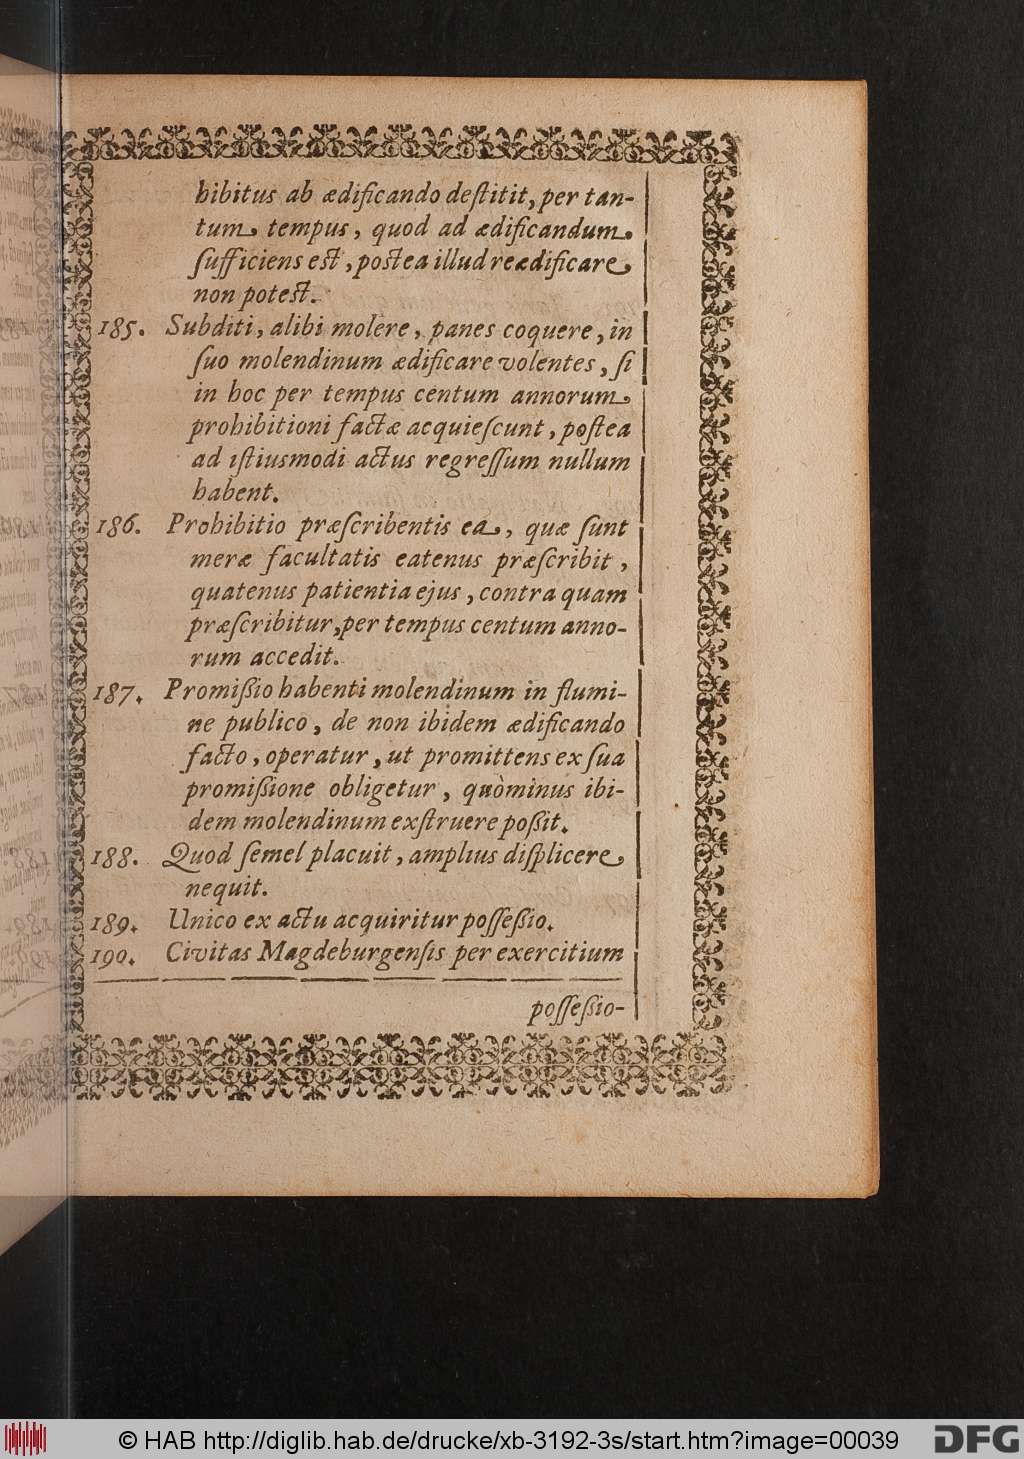 hibitus ab ædificando deſtitit, per tan-
tum tempus, quod ad ædificandum
ſufficiens est, postea illud reædificare
non potest.
185. Subditi, alibi molere, panes coquere, in
ſuo molendinum ædificare volentes, ſi
in hoc per tempus centum annorum
prohibitioni factæ acquieſcunt, poſtea
ad iſtiusmodi actus regreſſum nullum
habent.
186. Prohibitio præſcribentis ea, quæ ſunt
meræ facultatis eatenus præſcribit,
quatenus patientia ejus, contra quam
præſcribitur, per tempus centum anno-
rum accedit.
187. Promiſsio habenti molendinum in flumi-
ne publico, de non ibidem ædificando
facto, operatur, ut promittens ex ſua
promiſsione obligetur, quòminus ibi-
dem molendinum exſtruere poßit.
188. Quod ſemel placuit, amplius diſplicere
nequit.
189. Unico ex actu acquiritur poſſeßio.
190. Civitas Magdeburgenſis per exercitium
poſſeßio-
© HAB http://diglib.hab.de/drucke/xb-3192-3s/start.htm?image=00039
DFG